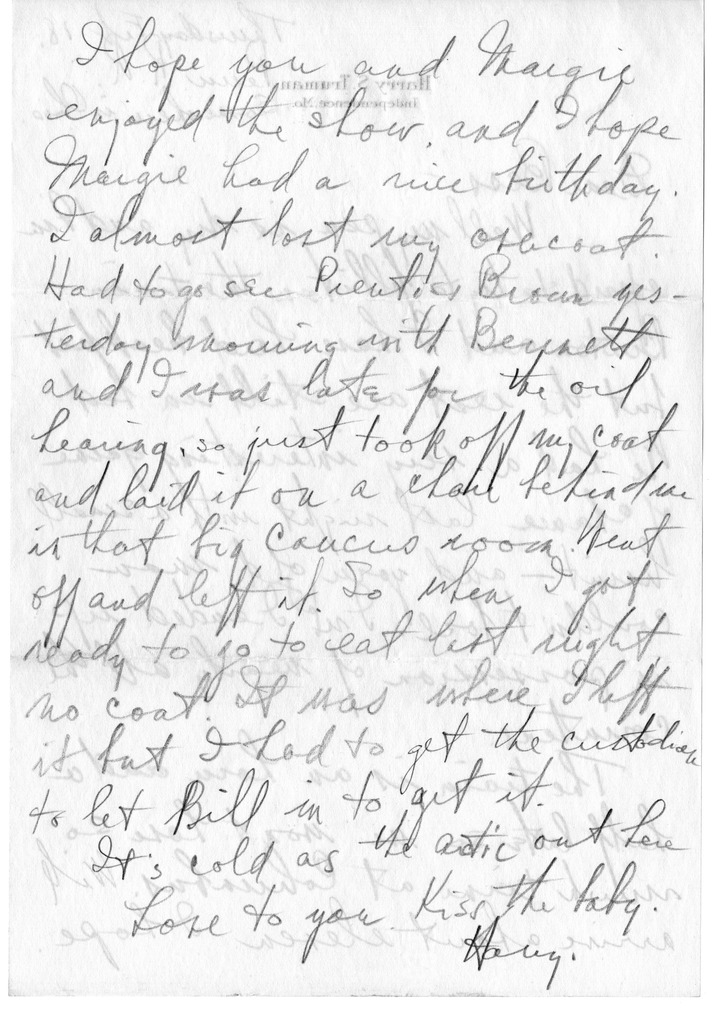 I hope you and Margie
enjoyed the show, and I hope
Margie had a nice birthday.
I almost lost my overcoat.
Had to go see Prentiss Brown yes-
terday morning with Bennett
and I was late for the oil
hearing, so just took off my coat
and laid it on a chair behind me
in that big caucus room. Went
off and left it. So when I got
ready to go to eat last night,
no coat. It was where I left
it but I had to get the custodian
to let Bill in to get it.
It's cold as the artic out here
Love to you. Kiss the baby.
Harry.
Harry S. Truman
Independence, Mo.